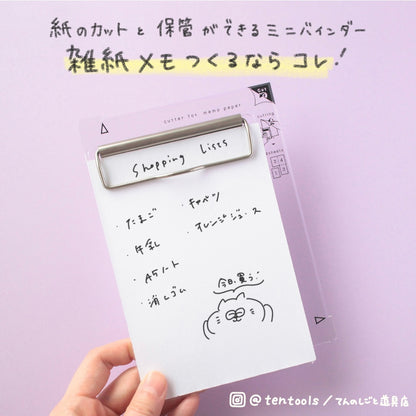 紙のカットと保管ができるミニバインダー
雑紙メモつくるならコレ!
cutter for memo paper
Shopping Lists
・たまご
・牛乳
・A5ノート
・消しゴム
・キャベツ
・オレンジジュース
今日、買う!
@tentools/てんのしごと道具店